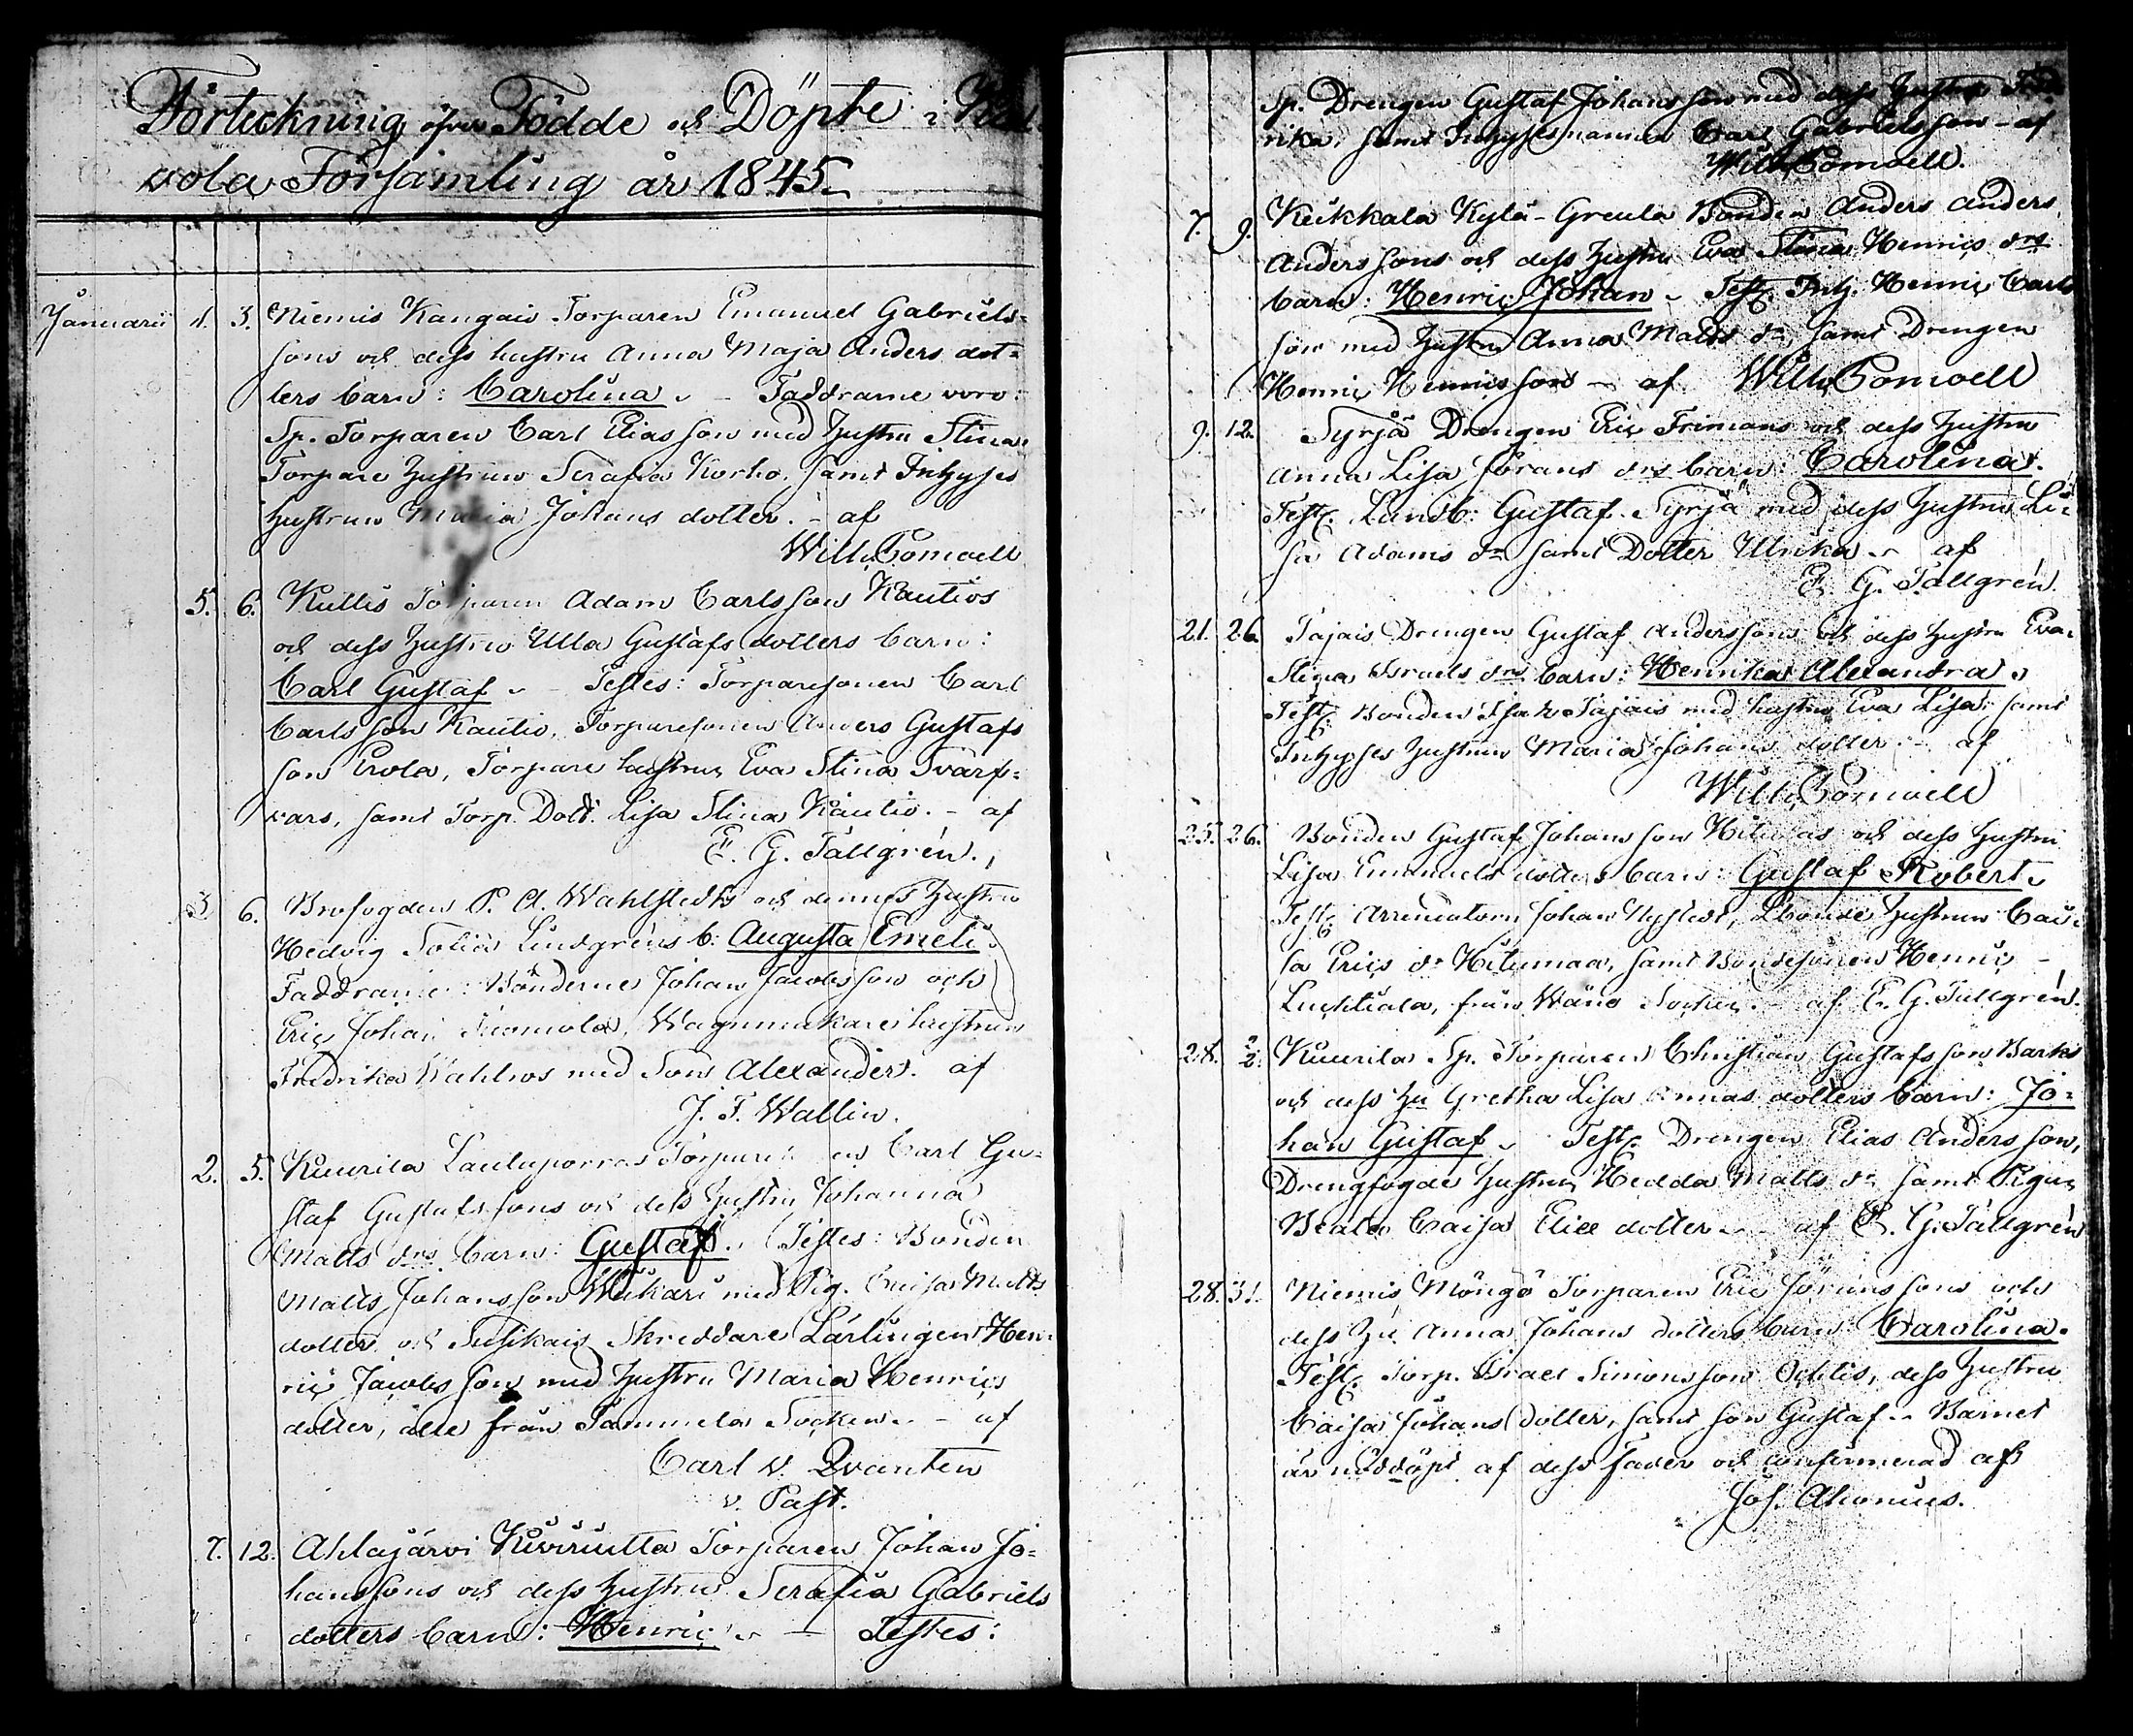 Förteckning öfver Födde och Döpte i
vola Församling år 1845
Januarii 1. 3. Niemis Kangais Torparen Emanuel Gabriels-
sons och dess hustru Anna Maja Anders dot-
ters barn: Carolina. - Faddrarne voro:
Sp. Torparen Carl Eliasson med Hustru Stina,
Torpare Hustrun Serafia Korho, samt Inhyses
Hustrun Maria Johans dotter. - af
Wilh. Pomoell
5. 6. Kullis Torparen Adam Carlsson Kautios
och dess Hustru Ulla Gustafs dotters barn:
Carl Gustaf. - Testes: Torparesonen Carl
Carlsson Kautio, Torparesonen Anders Gustafs
son Erola, Torpare hustrun Eva Stina Tvärf-
vars, samt Torp. Dott. Lisa Stina Kautio. - af
E. G. Tallgrén.
3 6. Brofogden P. A. Wahlstedts och dennes Hustru
Hedvig Sofia Lindgréns b: Augusta Emeli.
Faddrarne: Bönderne Johan Jacobsson och
Eric Johan Wagnmakare hustrun
Fredrika Wahlroos med Son Alexander. af
J. F. Wallin.
2. 5. Kuurila Laulaporras Carl Gu-
staf Gustafssons och dess Hustru Johanna
Matts drs barn: Gustaf. Testes: Bonden
Matts Johansson Wiikari med Pig. Caisa Matts
dotter, och Susikais Skreddare Lärlingen Hen-
ric Jacobsson med Hustru Maria Henrics
dotter, alle från Tammela Socken. - af
Carl v. Qvanten
v. Past.
7. 12. Ahlajärvi Torparen Johan Jo-
hanssons och dess Hustru Serafia Gabriels
dotters barn: Henric. - Testes:
Sp. Drengen Gustaf Johansson med dess Hustru Fred
rika, samt Inhysesmannen Carl Gabrielsson - af
Wilh. Pomoell.
7. 9. Keikkala Kylä-Greula Bonden Anders Anders
Anderssons och dess Hustru Eva Stina Henrics drs
barn: Henric Johan. Test. Inh. Henric Carls
son med Hustru Anna Matts dr, samt Drengen
Henric Henricsson - af Wilh. Pomoell
9. 12. Syrjä Drengen Eric Frimans och dess Hustru
Anna Lisa Görans drs barn: Carolina.
Test. Landb: Gustaf Syrjä med dess Hustru Li-
sa Adams dr samt Dotter Ulrika. - af
E. G. Tallgrén.
21. 26. Tajais Drengen Gustaf Anderssons och dess Hustru Eva
Stina Israels drs barn: Henrika Alexandra.
Test. Bonden Isak Tajais med hustru Eva Lisa, samt
Inhyses Hustrun Maria Johans dotter. - af
Wilh. Pomoell
25. 26. Bonden Gustaf Johansson och dess Hustru
Lisa Emanuels dotters barn: Gustaf Robert.
Test. Arrendatorn Johan Nystedt, Lbonde Hustrun Cai-
sa Erics dr samt Bondesonen Henric -
från Wånå Socken. - af E. G. Tallgrén.
28. 2/2. Kuurila Sp. Torparen Christian Gustafsson Barks
och dess Hu Gretha Lisa Annas dotters barn: Jo-
han Gustaf. Test. Drengen Elias Andersson,
Drengfogde Hustrun Hedda Matts dr samt Pigan
Beata Caisa Elice dotter. - af E. G. Tallgrén
28. 31. Niemis Möngö Torparen Eric Göranssons och
dess Hu Anna Johans dotters barn: Carolina.
Test. Torp. Israel Simonsson dess Hustru
Caisa Johans dotter, samt son Gustaf. - Barnet
är nöddöpt af dess fader och confirmerad af
Joh. Ahonius.